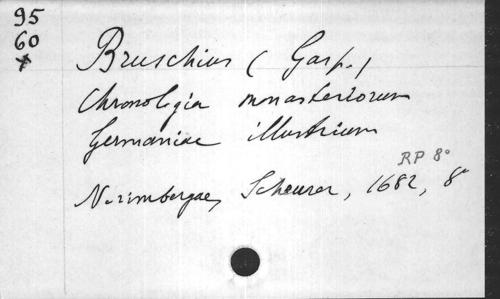 95
60
Bruschius (Gasp.)
Chronologia monasteriorum
Germaniae illustrium
RP 8°
Norimbergae, Scheurer, 1682, 8°